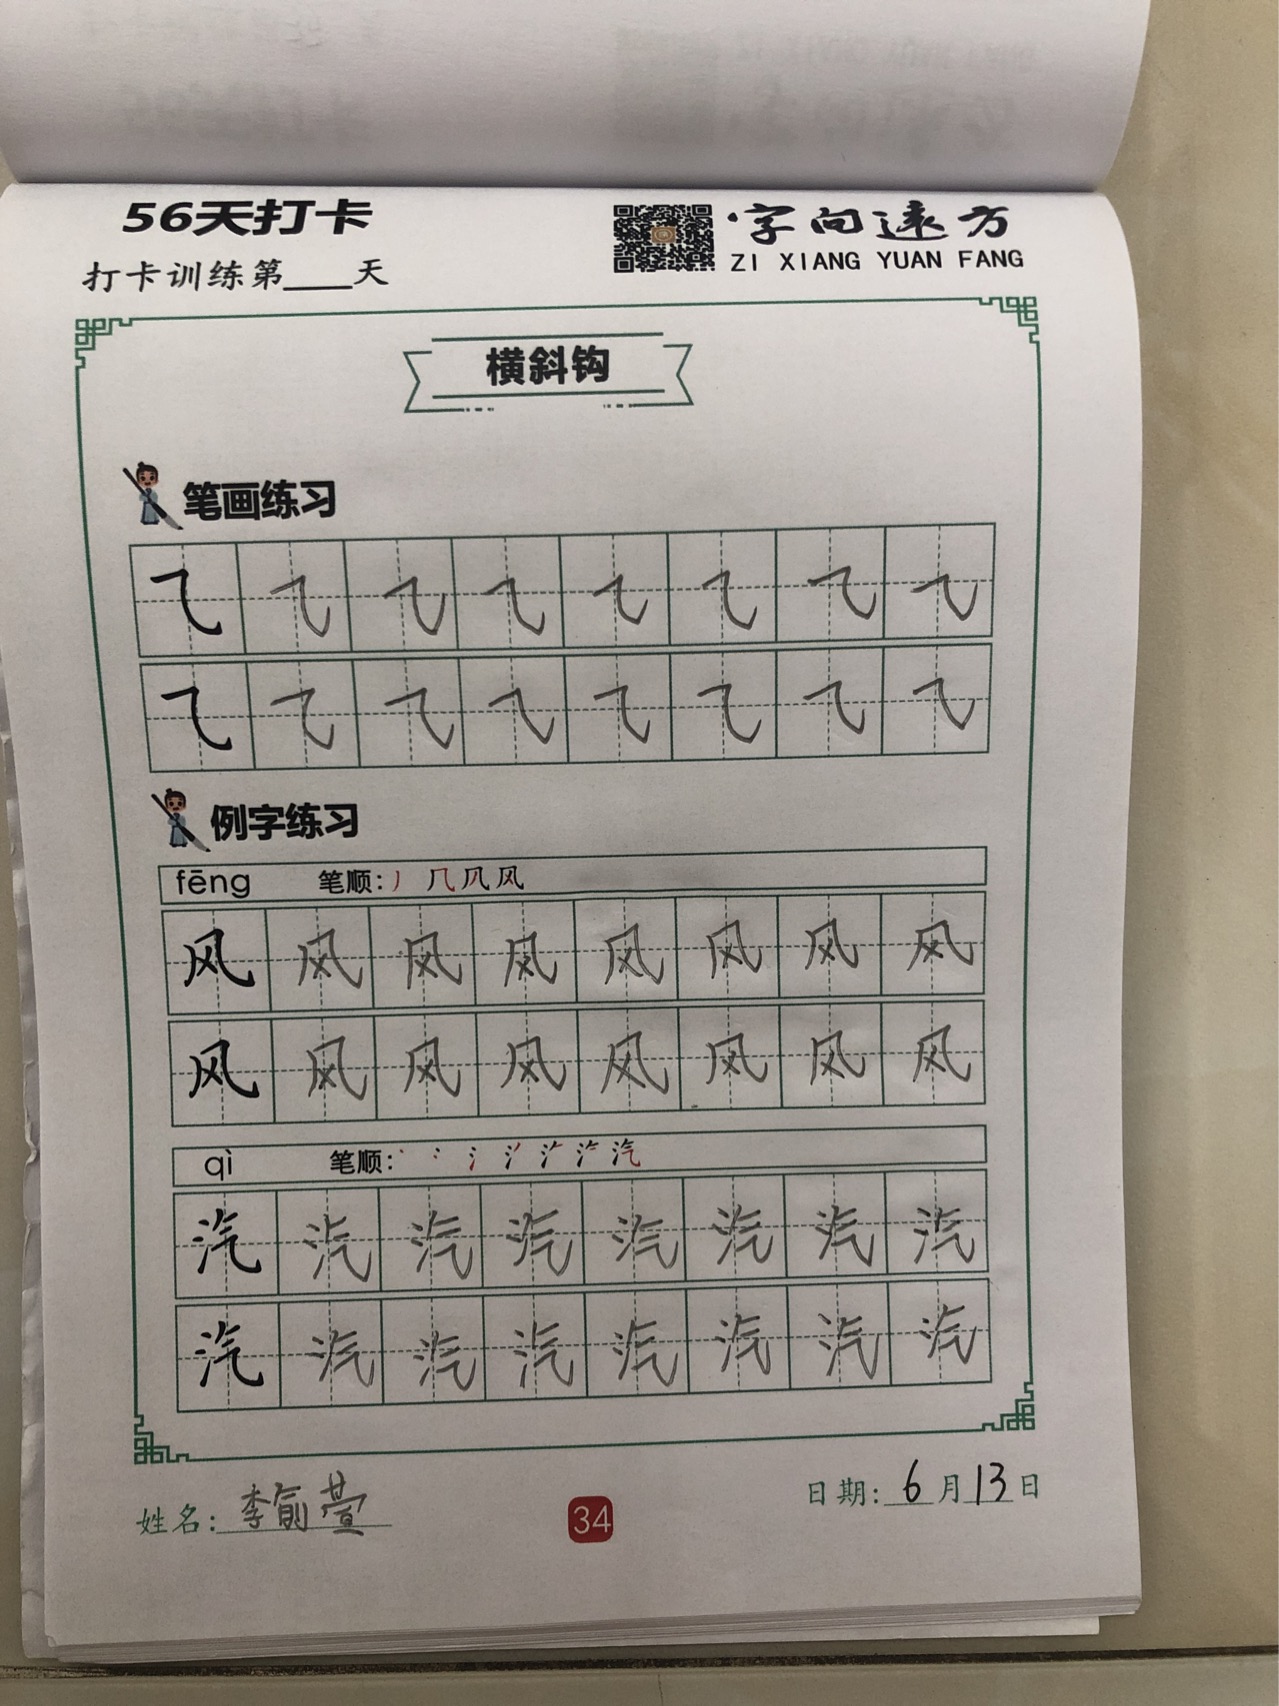 56天打卡
字向远方
ZI XIANG YUAN FANG
打卡训练第____天
横斜钩
笔画练习
㇈ ㇈ ㇈ ㇈ ㇈ ㇈ ㇈ ㇈
㇈ ㇈ ㇈ ㇈ ㇈ ㇈ ㇈ ㇈
例字练习
fēng 笔顺: 丿 几 凤 风
风 风 风 风 风 风 风 风
风 风 风 风 风 风 风 风
qì 笔顺:
汽 汽 汽 汽 汽 汽 汽 汽
汽 汽 汽 汽 汽 汽 汽 汽
姓名: 李俞萱
34
日期: 6月13日